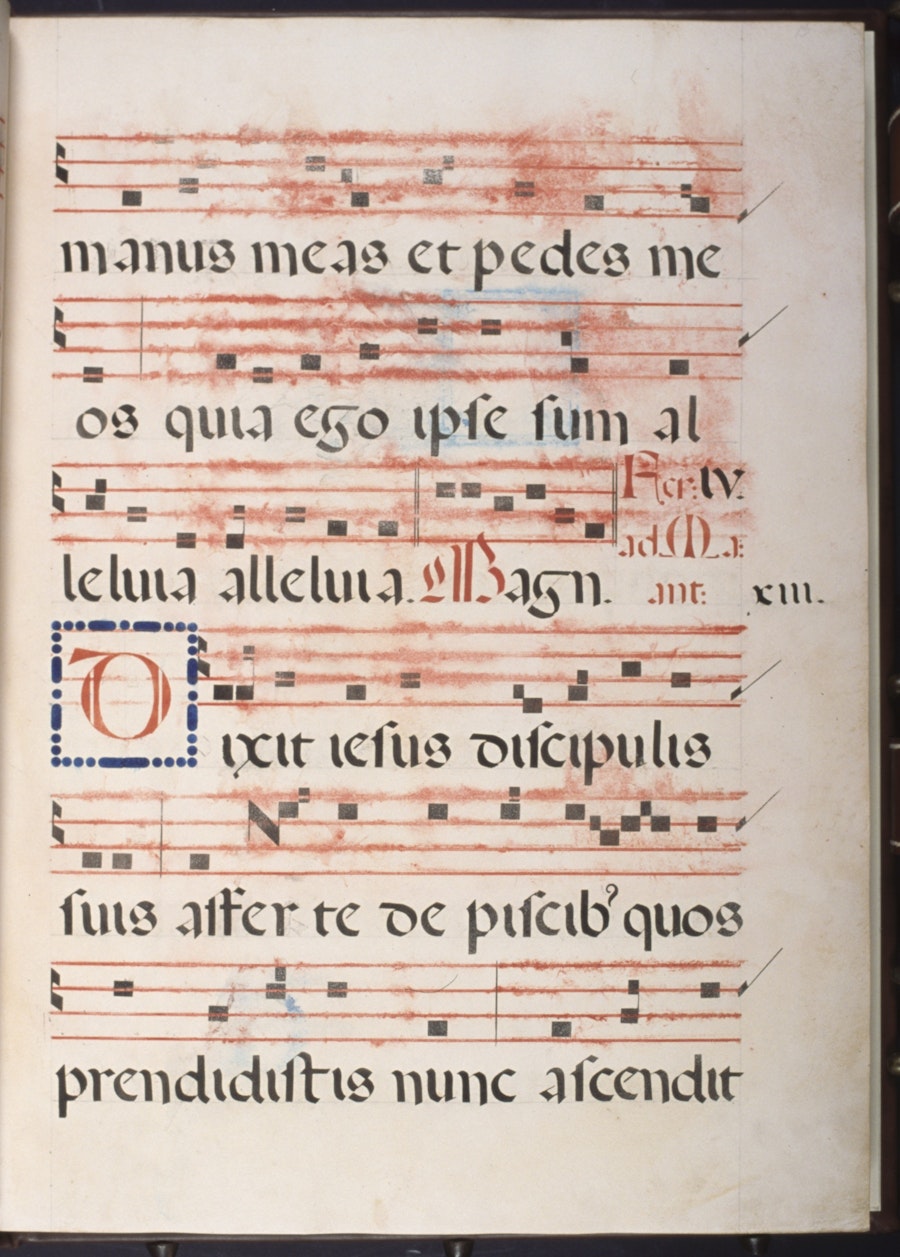 manus meas et pedes me
os quia ego ipſe ſum al
Fer: IV.
ad Ma:
leluia alleluia. Magn. ant: xiii.
Dixit ieſus diſcipulis
ſuis afferte de piſcib⁹ quos
prendidiſtis nunc aſcendit